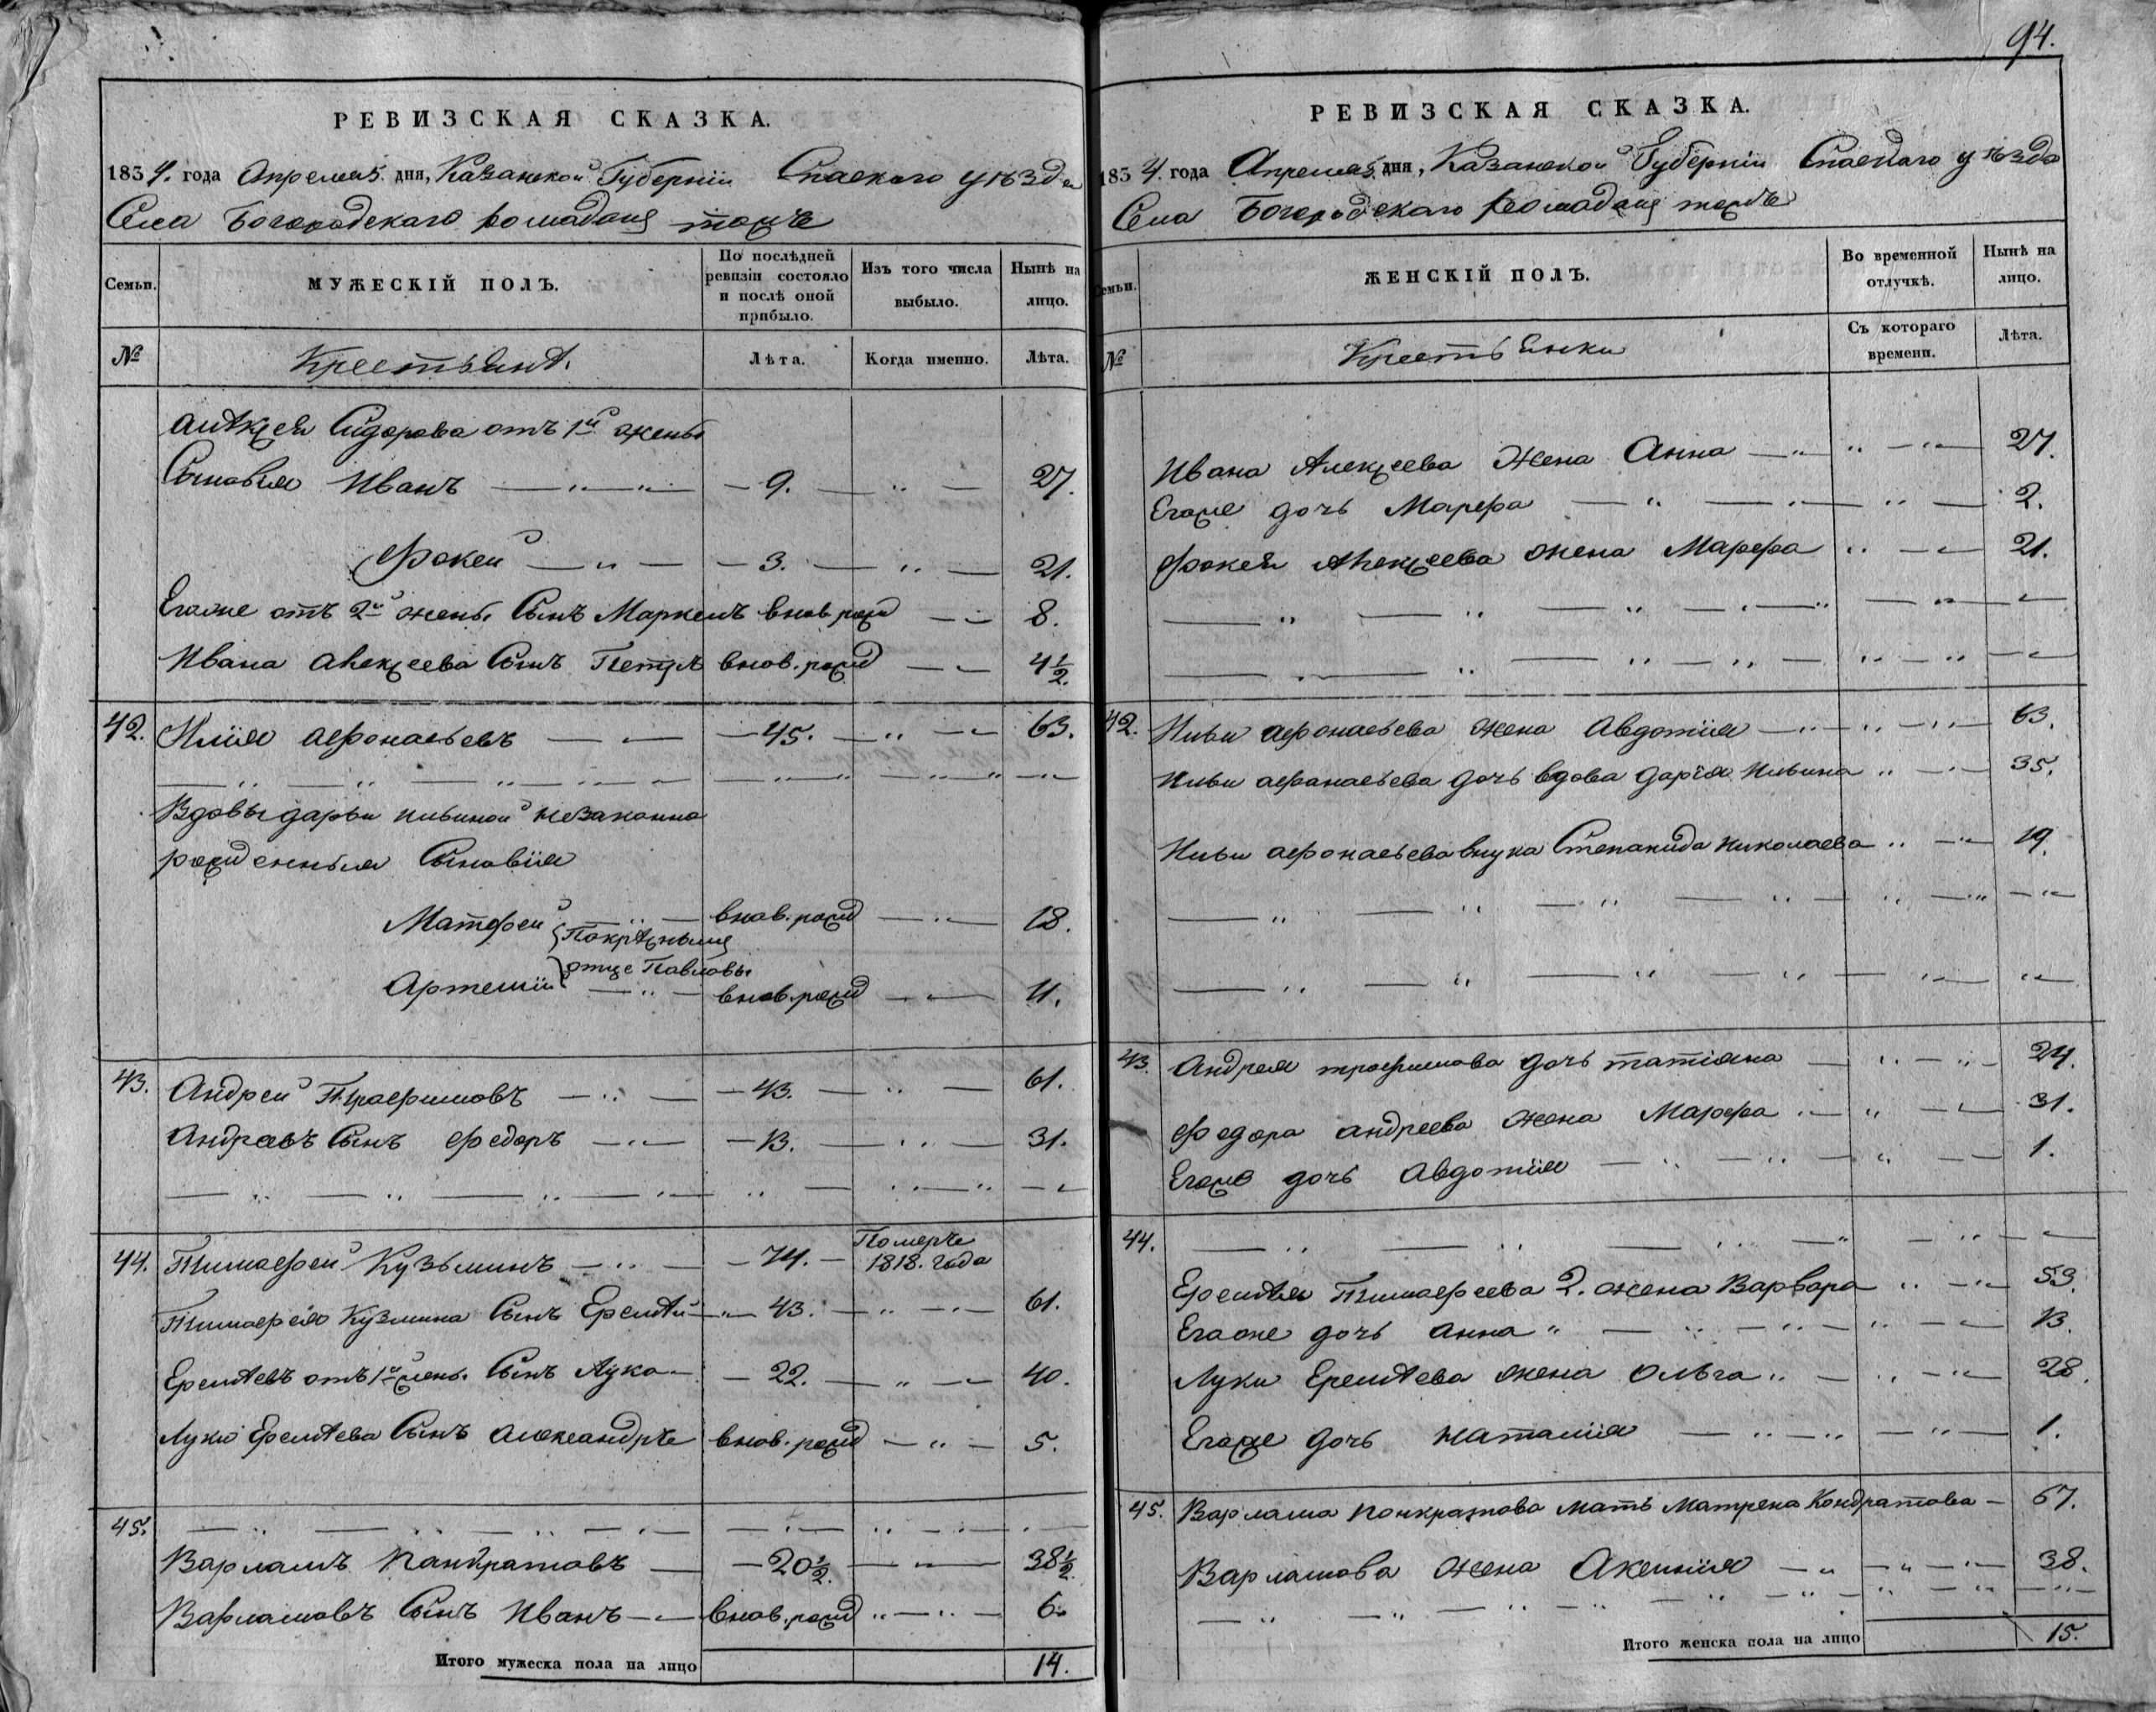 94.
РЕВИЗСКАЯ СКАЗКА.
1834. года Апреля 5. дня, Казанской Губернiи Спаскаго уѣзда
Села Богородскаго Ромадана тожъ
Семьи. МУЖЕСКIЙ ПОЛЪ. По послѣдней ревизiи состояло и послѣ оной прибыло. Изъ того числа выбыло. Нынѣ на лицо.
№ Крестьянѣ. Лѣта. Когда именно. Лѣта.
Алѣксея Сидорова отъ 1й жены
Сыновья Иванъ 9. 27.
Фокей 3. 21.
Егоже отъ 2й жены Сынъ Маркелъ внов. рожд 8.
Ивана Алексеева Сынъ Петръ внов. рожд 4½.
42. Илiя Афонасьевъ 45. 63.
Вдовы дарьи ильиной незаконно
рожденныя Сыновiя
Матфей внов. рожд 18.
Покрѣсныму
отце Павловы
Артемiй внов. рожд 11.
43. Андрей Трафимовъ 43. 61.
Андреевъ Сынъ Федоръ 13. 31.
44. Тимафей Кузьминъ 74. Померъ 1818. года
Тимафея Кузмина Сынъ Еремѣй 43. 61.
Еремѣевъ отъ 1й жены Сынъ Лука 22. 40.
Луки Еремѣева Сынъ Александръ внов. рожд 5.
45.
Варламъ Панкратовъ 20½. 38½.
Варламовъ Сынъ Иванъ внов. рожд 6
Итого мужеска пола на лицо 14.
РЕВИЗСКАЯ СКАЗКА.
1834. года Апреля 5. дня, Казанской Губернiи Спаскаго уѣзда
Села Богородскаго Ромадана тожъ
Семьи. ЖЕНСКIЙ ПОЛЪ. Во временной отлучкѣ. Нынѣ на лицо.
№ Крестьянки Съ котораго времени. Лѣта.
Ивана Алексеева Жена Анна 27.
Егоже дочь Марфа 2.
Фокея Алексеева жена Марфа 21.
42. Ильи Афонасьева жена Авдотiя 63.
Ильи афанасьева дочь вдова дарiя Ильина 35.
Ильи афонасьева внука Степанида николаева 19.
43. Андрея трофимова дочь татiяна 24.
Федора андреева жена Марфа 31.
Егоже дочь Авдотiя 1.
44.
Еремѣя Тимафеева 2. жена Варвара 53.
Егоже дочь анна 13.
Луки Еремѣева жена Ольга 28.
Егоже дочь наталiя 1.
45. Варлама Понкратова мать Матрена Кондратова 67.
Варламова жена Аксинiя 38.
Итого женска пола на лицо 15.